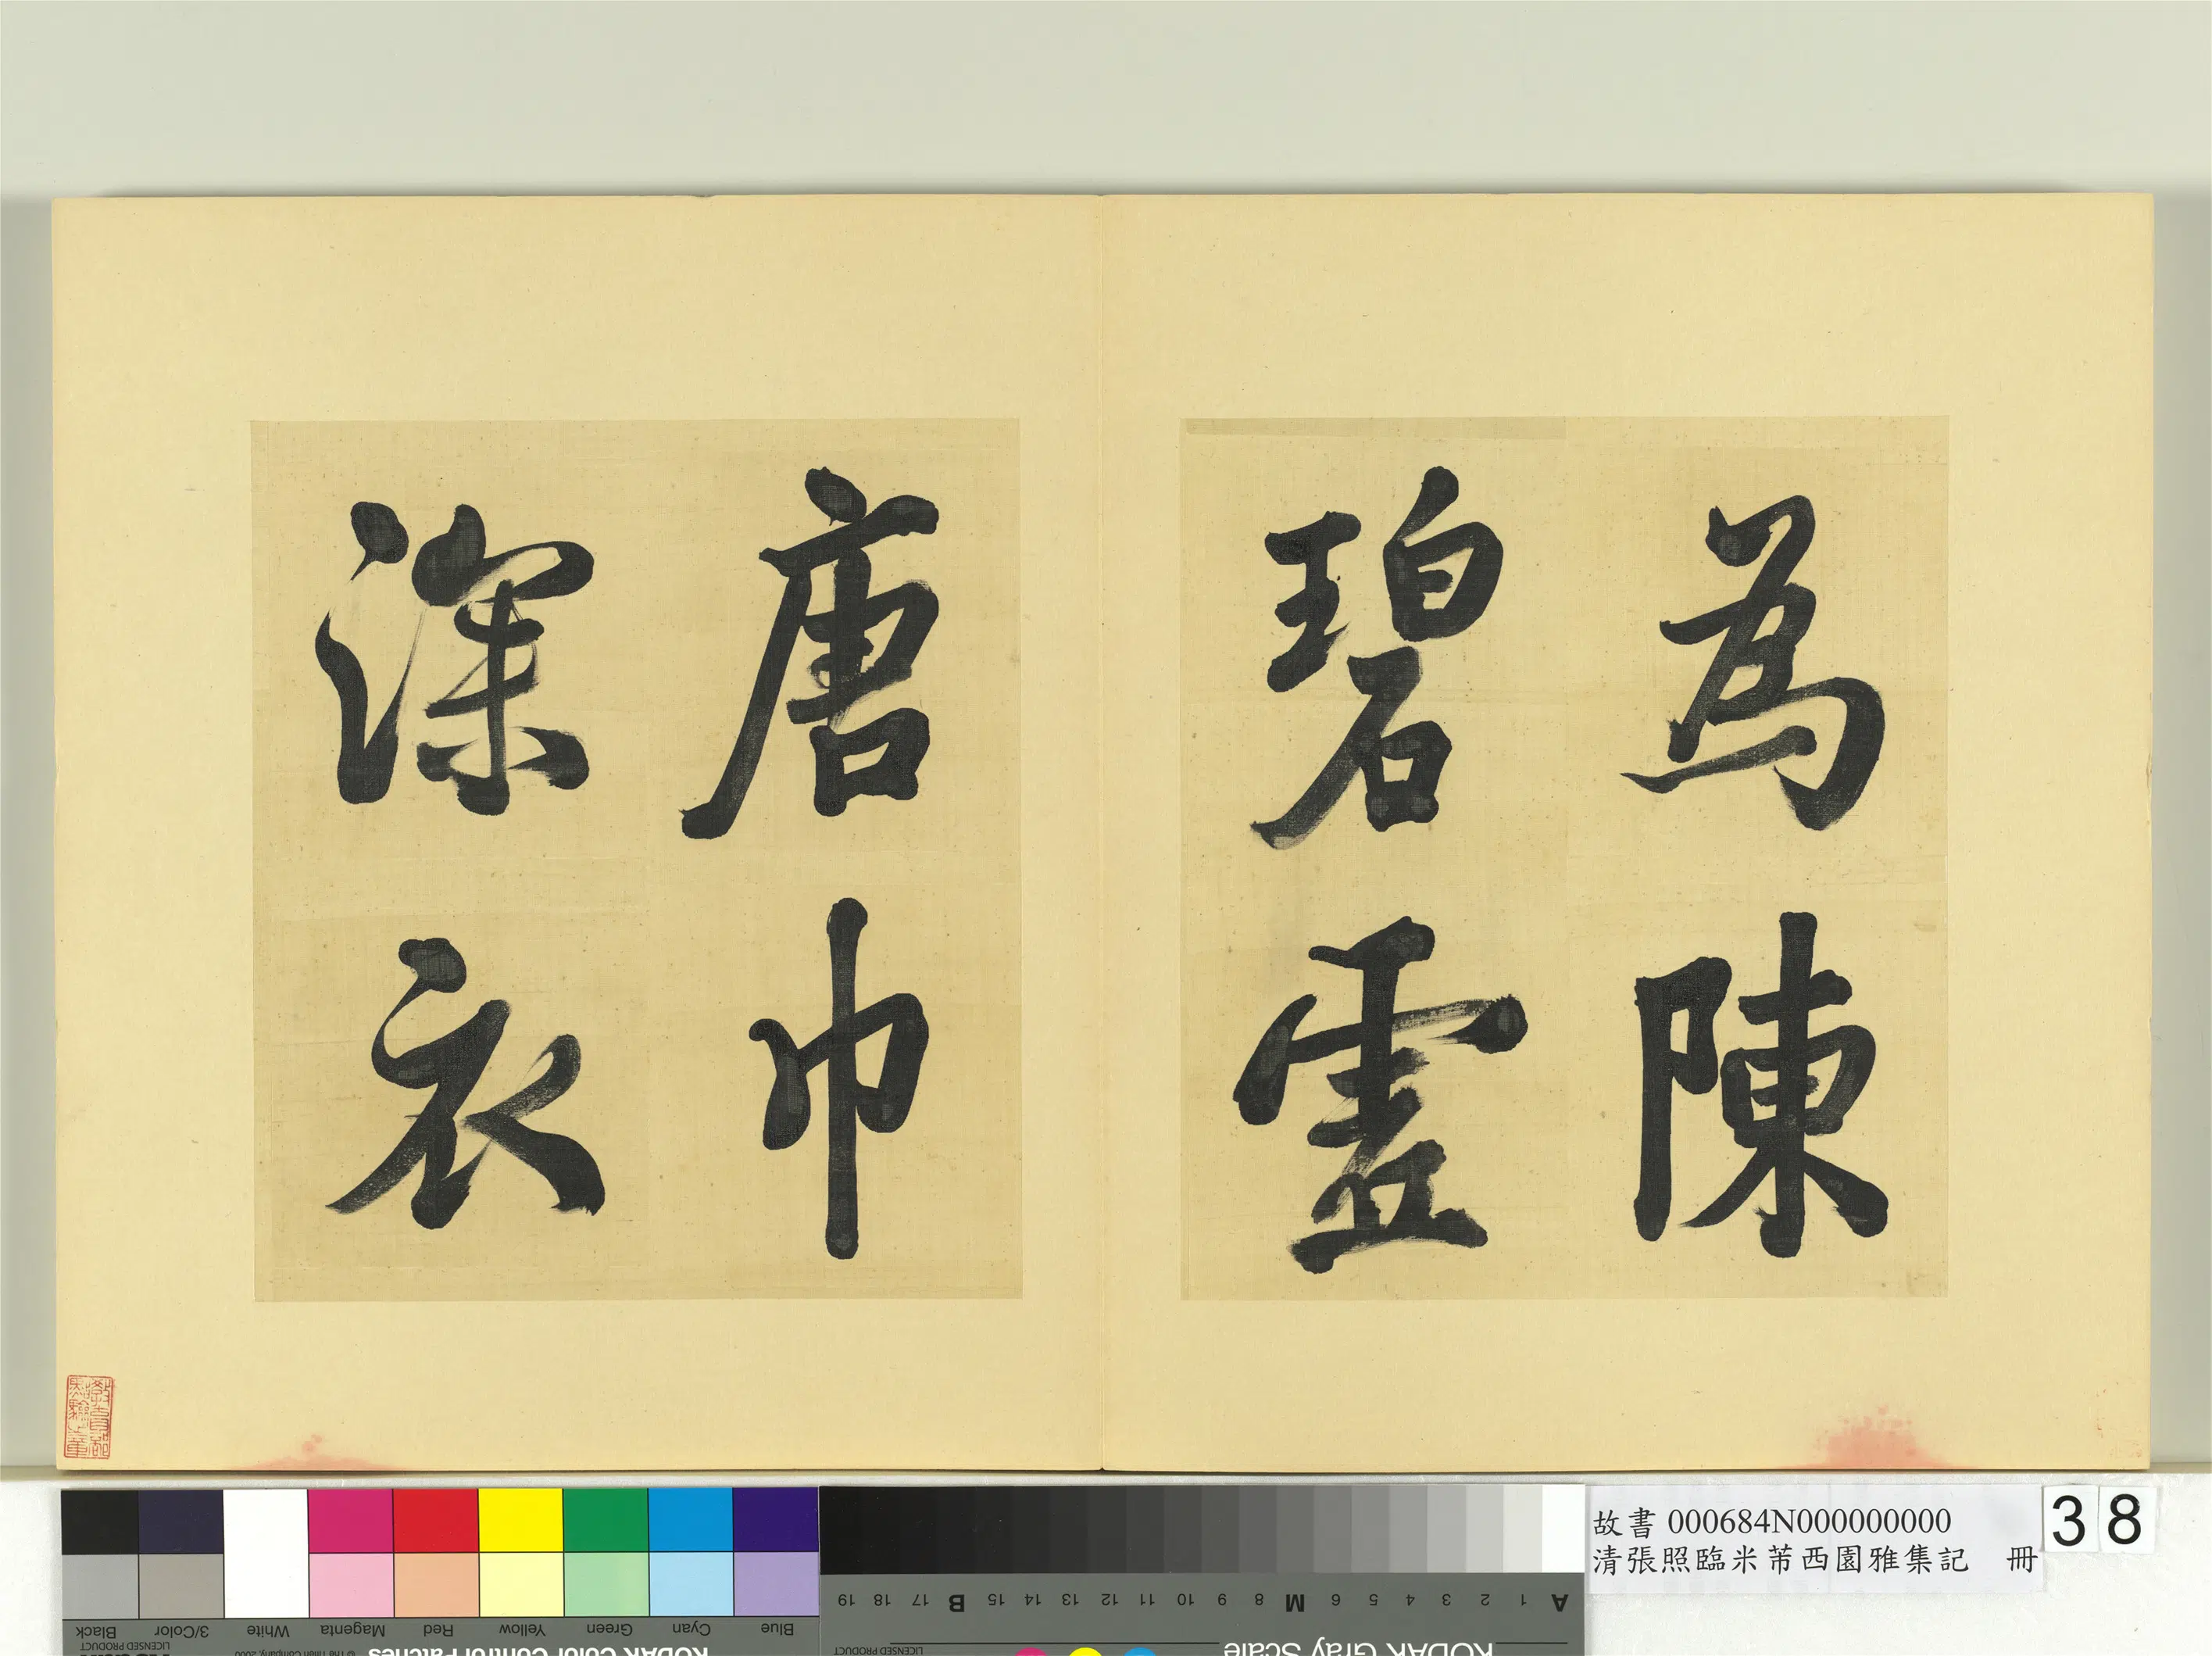 為陳
碧虛
唐巾
深衣
故書 000684N000000000
清張照臨米芾西園雅集記 冊
38
Black
3/Color
White
Magenta
Red
Yellow
Green
Cyan
Blue
LICENSED PRODUCT
© The Tiffen Company, 2000
KODAK Color Control Patches
A 1 2 3 4 5 6 M 8 9 10 11 12 13 14 15 B 17 18 19
KODAK Gray Scale
LICENSED PRODUCT